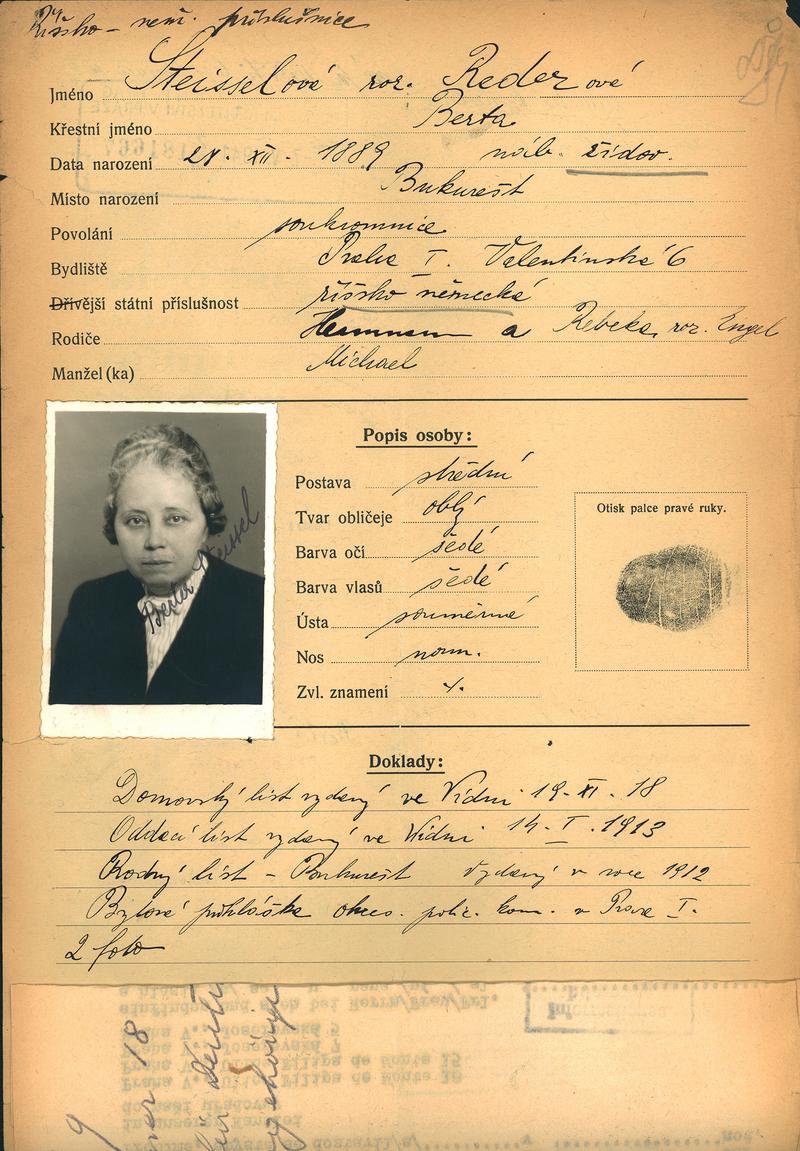 Říšsko-něm. příslušnice
Jméno Steisselová roz. Rederová
Křestní jméno Berta
Data narození XII. 1889 náb. židov.
Místo narození Bukurešt
Povolání soukromnice
Bydliště Praha I. Valentinská 6
Dřívější státní příslušnost říšsko německá
Rodiče Hermann a Rebeka roz. Engel
Manžel(ka) Michael
Popis osoby:
Postava střední
Tvar obličeje oblý
Barva očí šedé
Barva vlasů šedé
Ústa souměrné
Nos norm.
Zvl. znamení
Otisk palce pravé ruky.
Berta Steissel
Doklady:
Domovský list vydaný ve Vídni 19. XI. 18
Oddací list vydaný ve Vídni 14. I. 1913
Rodný list – Bukurest vydaný v roce 1912
Bytová přihláška okres. polic. kom. v Praze I.
2 foto